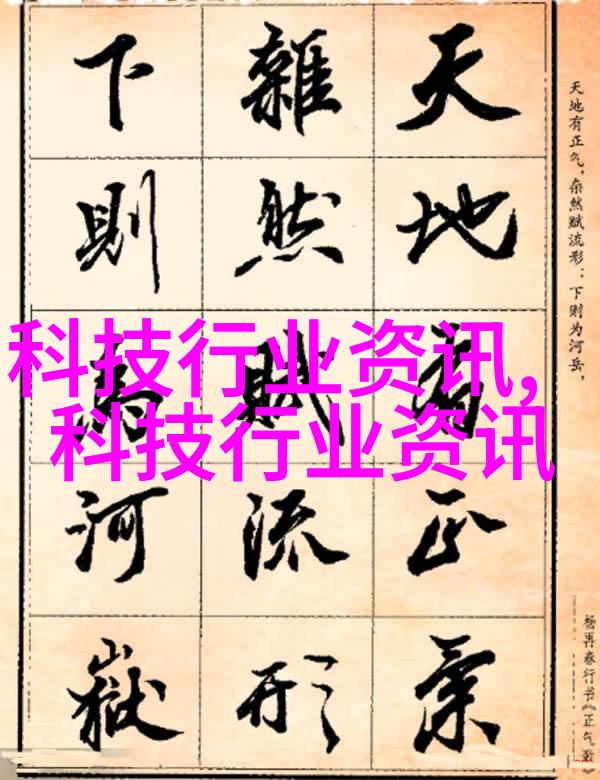 天地有正氣
雜然賦流形
下則為河嶽
天地有正气，杂然赋流形：下则为河岳，
杨再春行书《正气歌》
科技行业资讯,
科技行业资讯